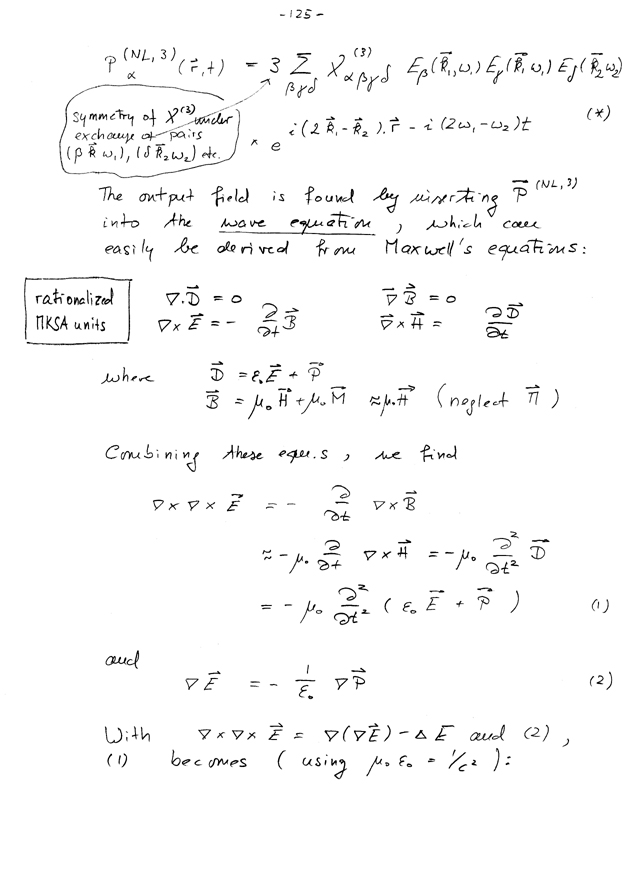 -125-
P_α^(NL,3) (r⃗,t) = 3 Σ_βγδ χ_αβγδ^(3) E_β(k⃗₁,ω₁) E_γ(k⃗₁ω₁) E_δ(k⃗₂ω₂)
× e^{i(2k⃗₁-k⃗₂).r⃗ - i(2ω₁-ω₂)t} (*)
symmetry of χ^(3) under
exchange of pairs
(β k⃗ ω₁), (δ k⃗₂ω₂) etc.
The output field is found by inserting P⃗^(NL,3)
into the wave equation, which can
easily be derived from Maxwell's equations:
rationalized
MKSA units
∇.D⃗ = 0 ∇⃗B⃗ = 0
∇×E⃗ = - ∂/∂t B⃗ ∇⃗×H⃗ = ∂D⃗/∂t
where D⃗ = ε₀E⃗ + P⃗
B⃗ = μ₀H⃗ + μ₀M⃗ ≈ μ₀H⃗ (neglect M⃗)
Combining these equ.s, we find
∇×∇×E⃗ = - ∂/∂t ∇×B⃗
≈ -μ₀ ∂/∂t ∇×H⃗ = -μ₀ ∂²/∂t² D⃗
= -μ₀ ∂²/∂t² (ε₀E⃗ + P⃗) (1)
and
∇E⃗ = - 1/ε₀ ∇P⃗ (2)
With ∇×∇×E⃗ = ∇(∇E⃗) - ΔE and (2),
(1) becomes (using μ₀ε₀ = 1/c²):